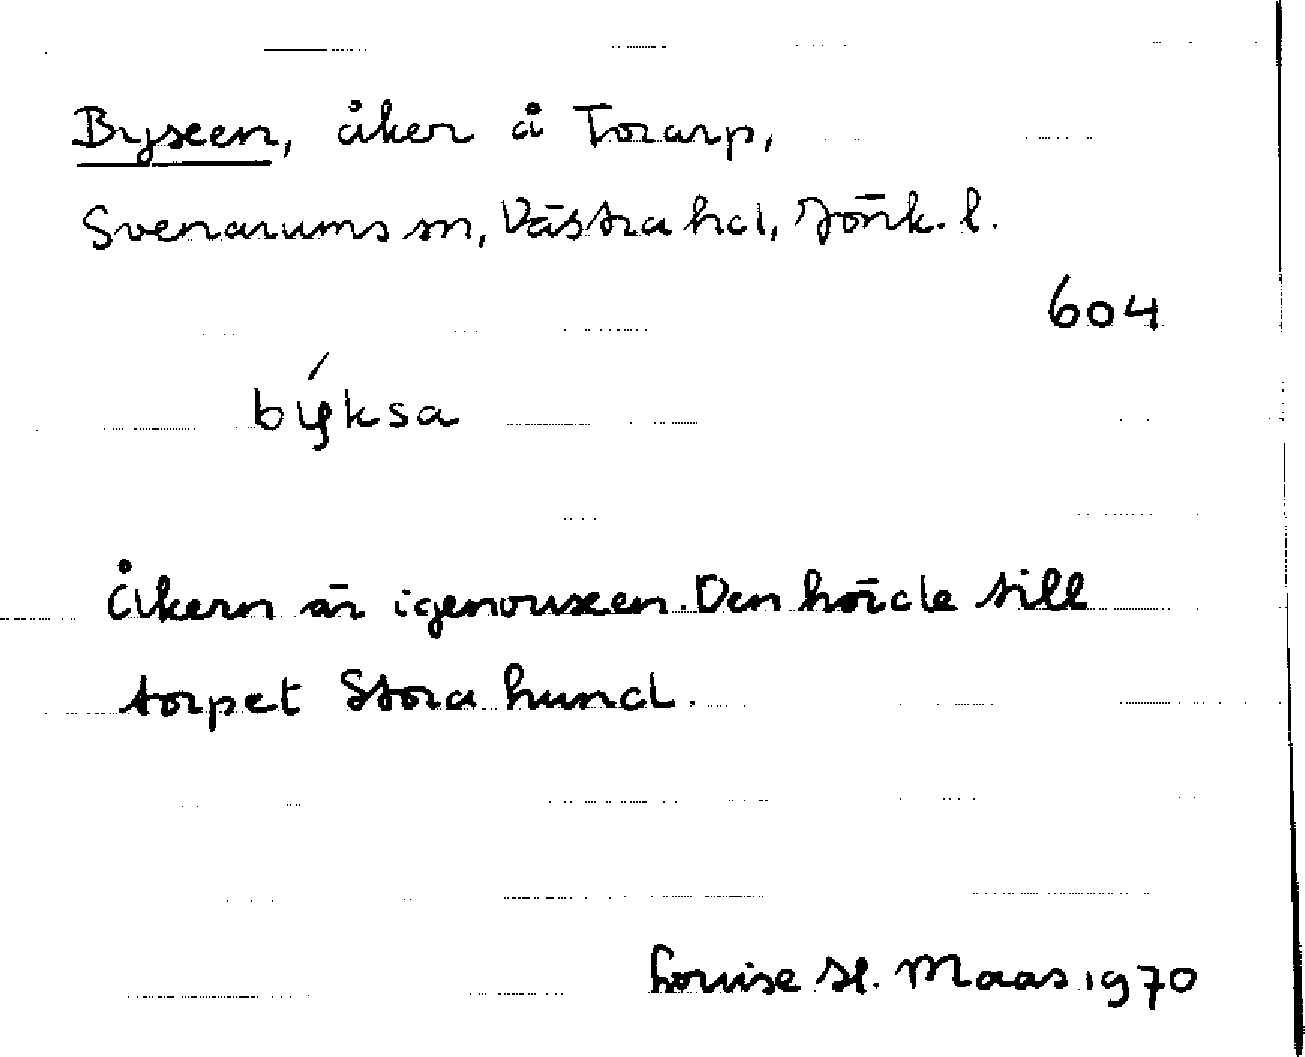 Byxen, åker å Torarp,
Svenarums sn, Västra hd, Jönk. l.
604
býksa
Åkern är igenvuxen. Den hörde till
torpet Stora Lund.
Louise St. Maas 1970